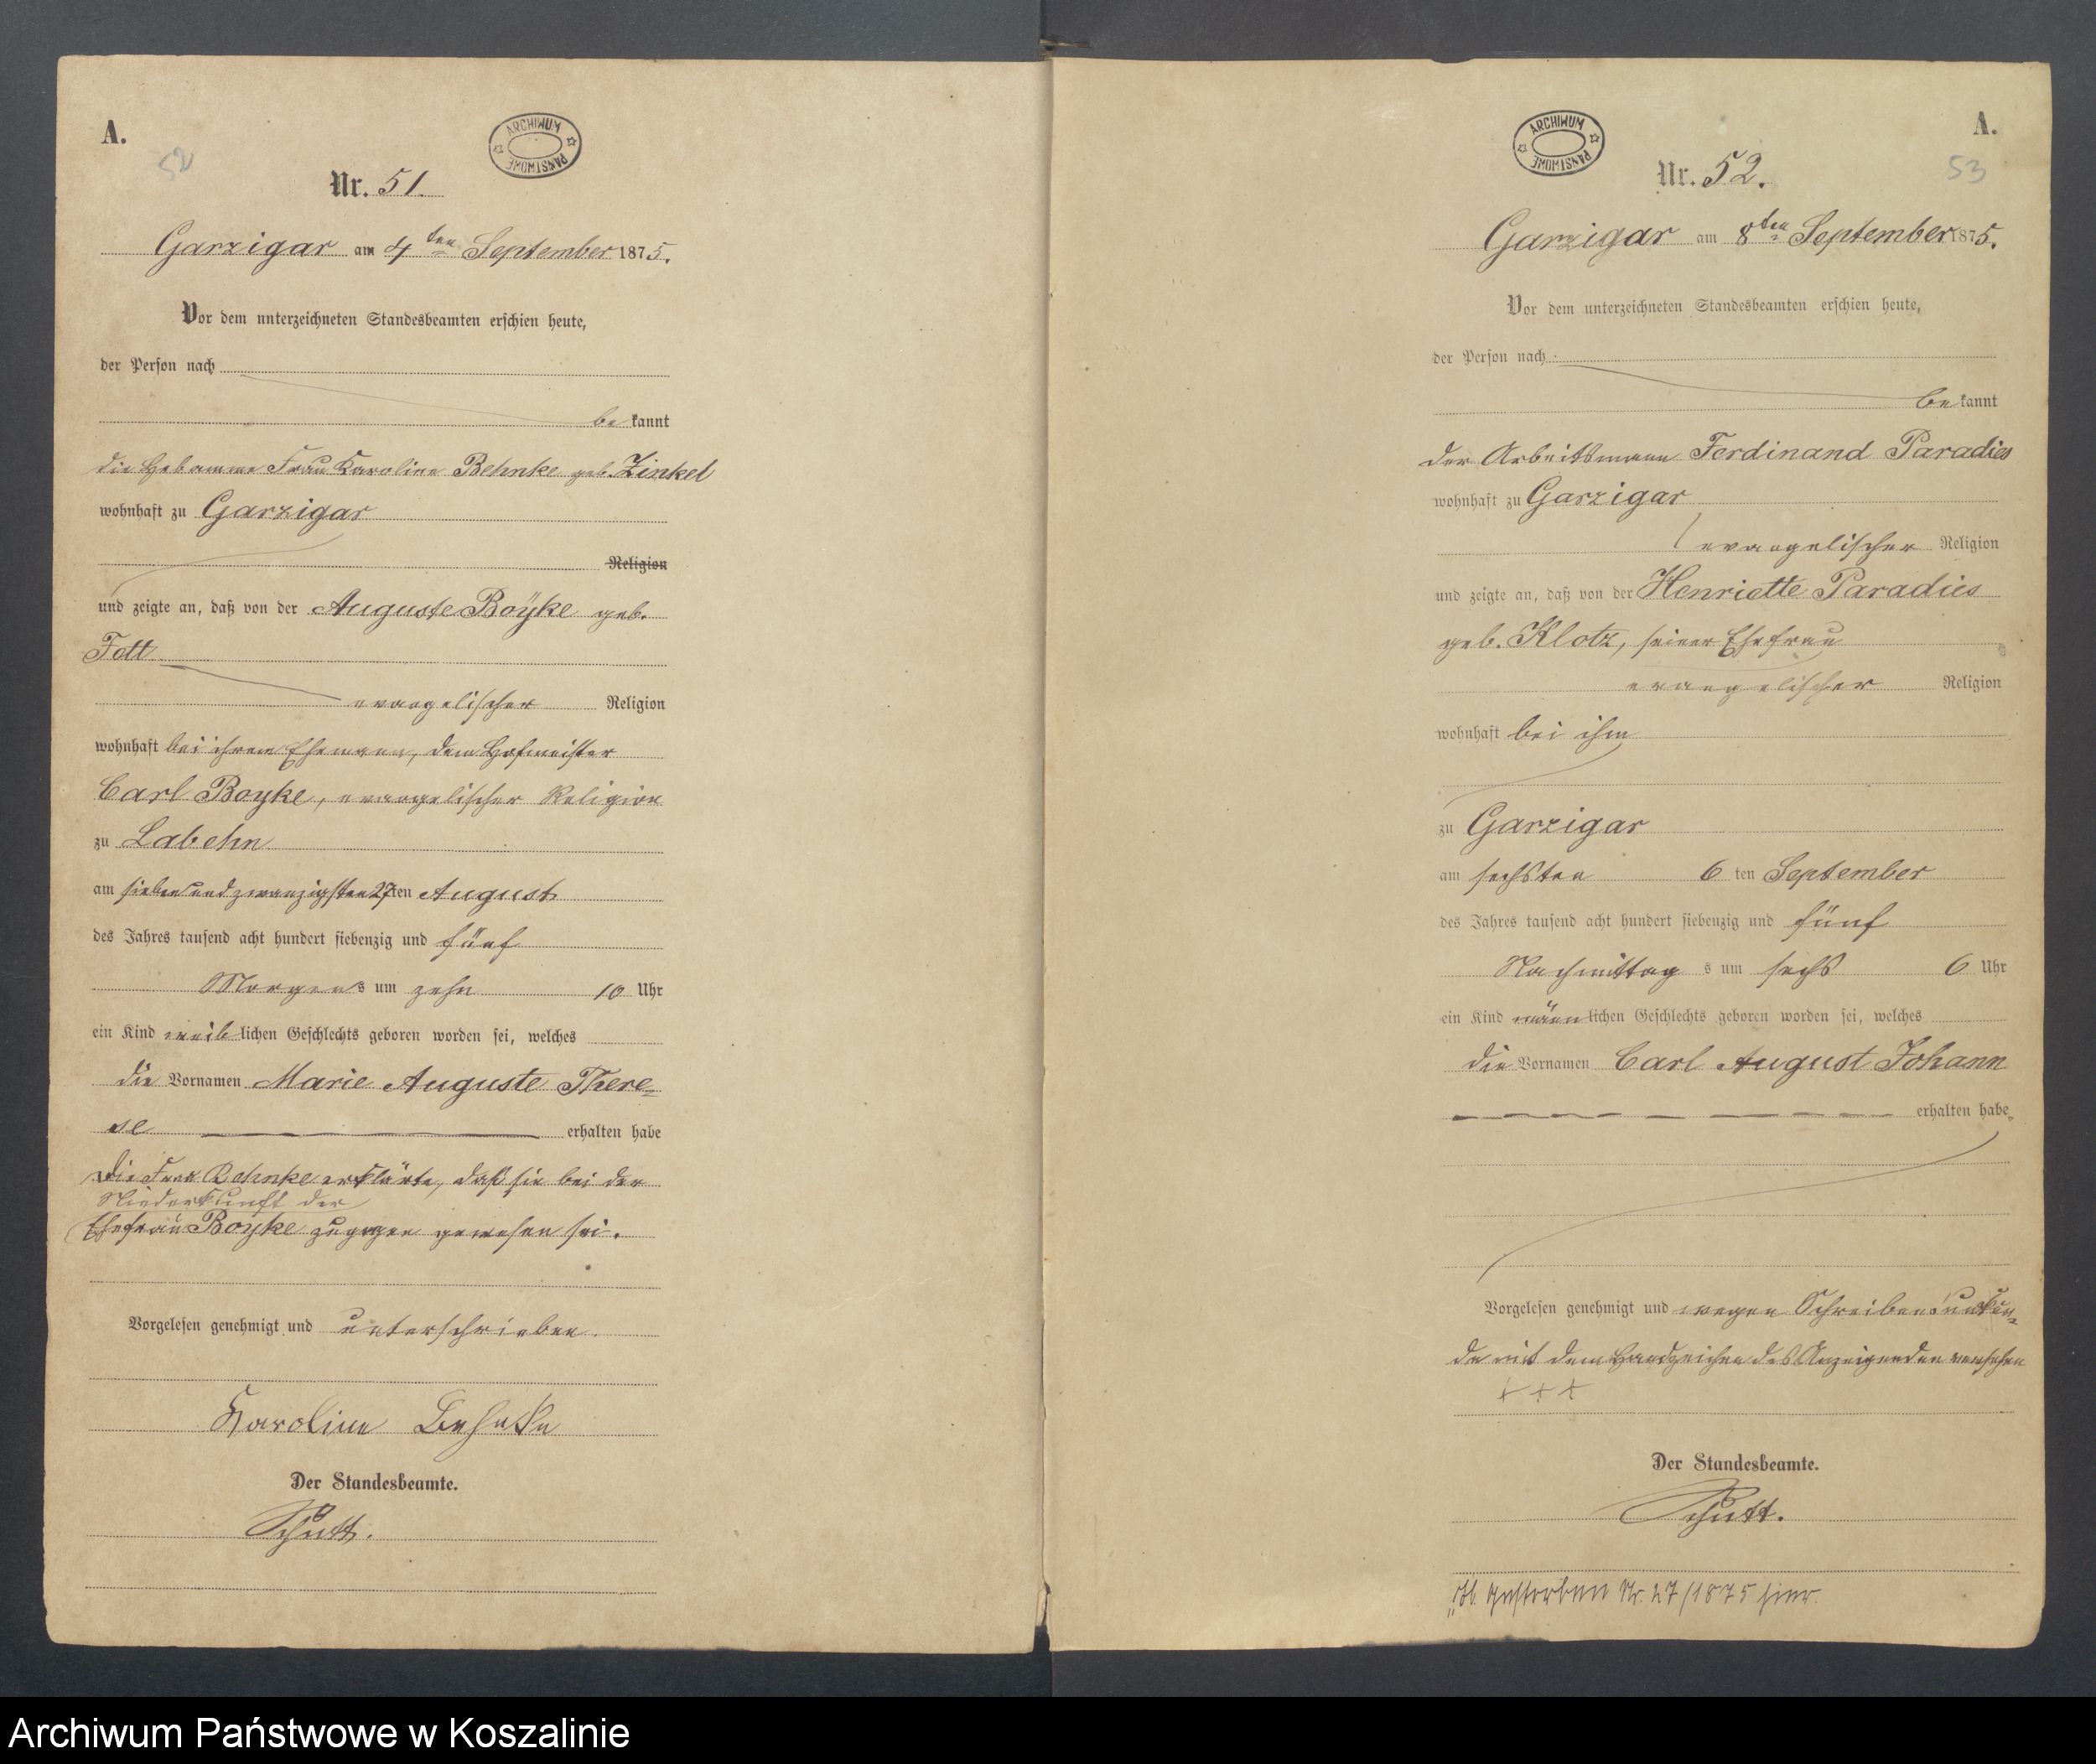 A.
52
ARCHIWUM PAŃSTWOWE
Nr. 51.
Garzigar am 4ten September 1875.
Vor dem unterzeichneten Standesbeamten erschien heute,
der Person nach
be kannt
die Hebamme Frau Karoline Behnke geb. Zinkel
wohnhaft zu Garzigar
Religion
und zeigte an, daß von der Auguste Boyke geb.
Fett
evangelischer Religion
wohnhaft bei ihrem Ehemann, dem Hofmeister
Carl Boyke, evangelischer Religion
zu Labehn
am sieben und zwanzigsten 27ten August
des Jahres tausend acht hundert siebenzig und fünf
Morgens um zehn 10 Uhr
ein Kind weiblichen Geschlechts geboren worden sei, welches
die Vornamen Marie Auguste There-
se erhalten habe
Die Frau Behnke erklärte, daß sie bei der
Niederkunft der
Ehefrau Boyke zugegen gewesen sei.
Vorgelesen genehmigt und unterschrieben.
Karoline Behnke
Der Standesbeamte.
Schütt.
A.
53
ARCHIWUM PAŃSTWOWE
Nr. 52.
Garzigar am 8ten September 1875.
Vor dem unterzeichneten Standesbeamten erschien heute,
der Person nach
be kannt
der Arbeitsmann Ferdinand Paradies
wohnhaft zu Garzigar
evangelischer Religion
und zeigte an, daß von der Henriette Paradies
geb. Klotz, seiner Ehefrau
evangelischer Religion
wohnhaft bei ihm
zu Garzigar
am sechsten 6 ten September
des Jahres tausend acht hundert siebenzig und fünf
Nachmittag s um sechs 6 Uhr
ein Kind männlichen Geschlechts geboren worden sei, welches
die Vornamen Carl August Johann
erhalten habe.
Vorgelesen genehmigt und wegen Schreibensunkun-
de mit dem Handzeichen des Anzeigenden versehen
+ + +
Der Standesbeamte.
Schütt.
gestorben Nr. 27/1875 hier.
Archiwum Państwowe w Koszalinie